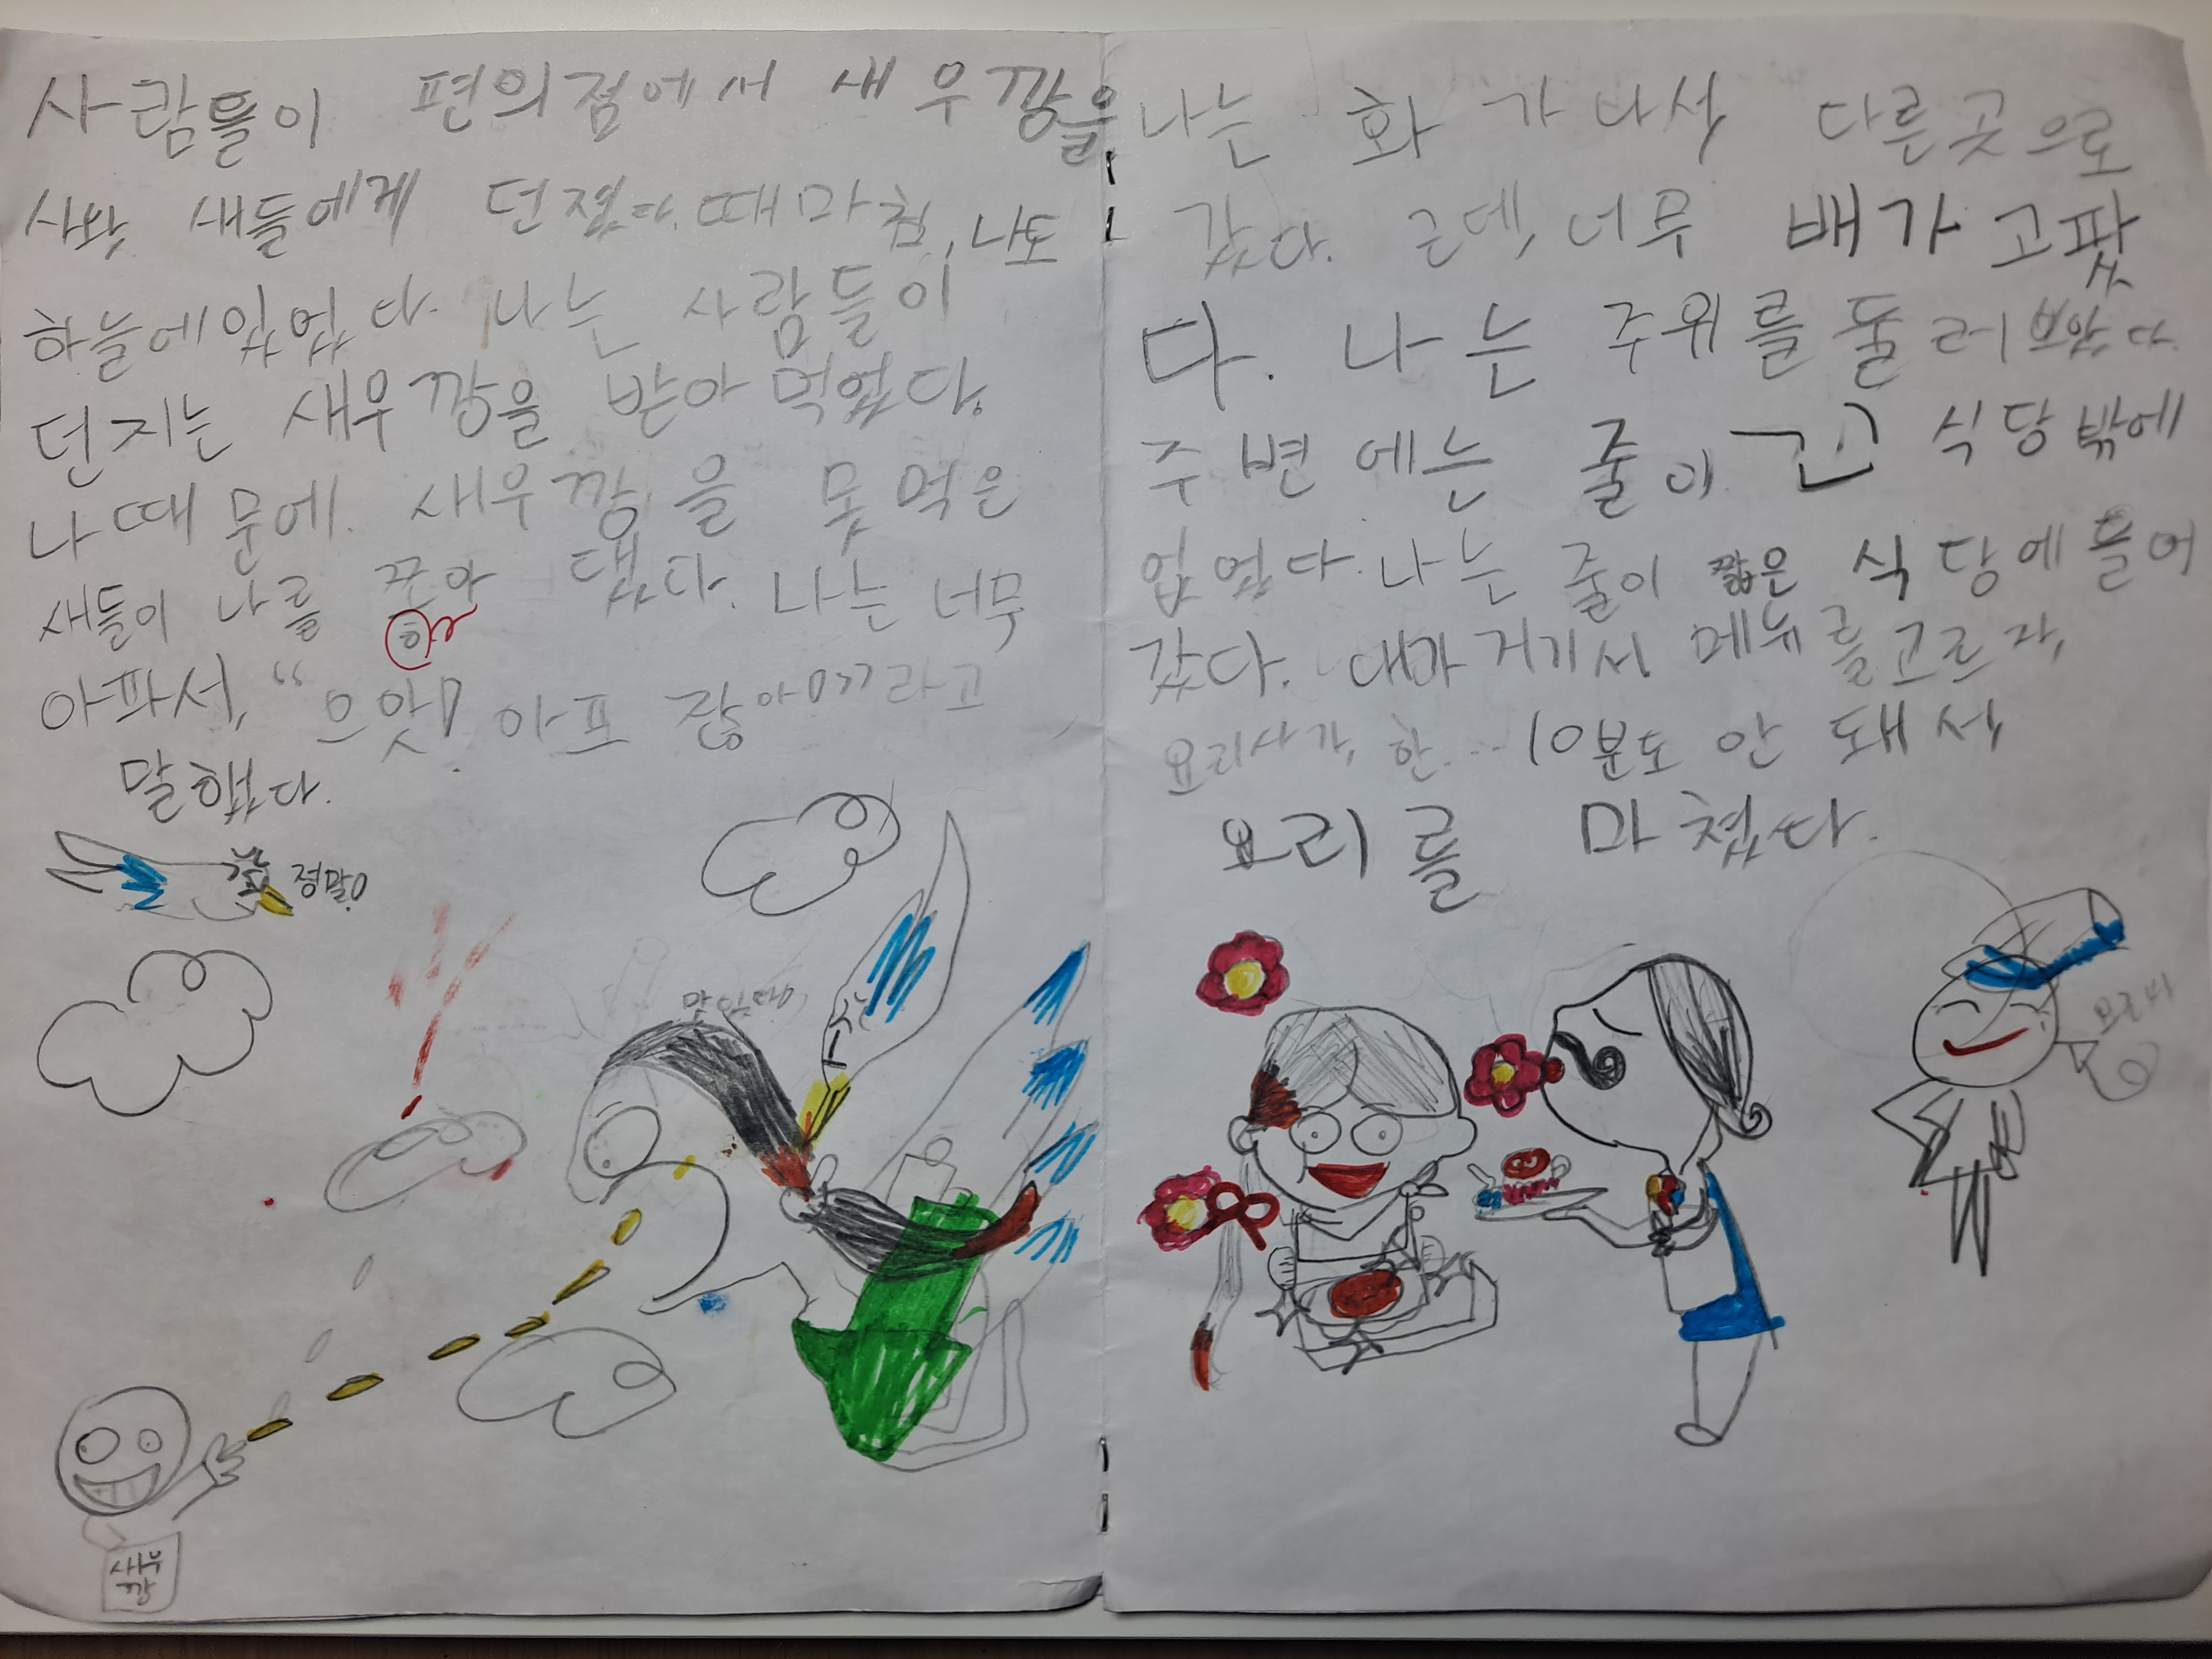 사람들이 편의점에서 새우깡을
사와 새들에게 던졌다. 때마침, 나도
하늘에있었다. 나는 사람들이
던지는 새우깡을 받아 먹었다.
나 때문에 새우깡을 못 먹은
새들이 나를 쪼아 댔다. 나는 너무
아파서, "으앗! 아프잖아!!"라고
말했다.
정말!
새우
깡
나는 화가 나서, 다른곳으로
갔다. 근데, 너무 배가 고팠
다. 나는 주위를 둘러보았다.
주변에는 줄이 긴 식당 밖에
없었다. 나는 줄이 짧은 식당에 들어
갔다. 내가 거기서 메뉴를 고르자,
요리사가, 한.. 10분도 안 돼서,
요리를 마쳤다.
요리사